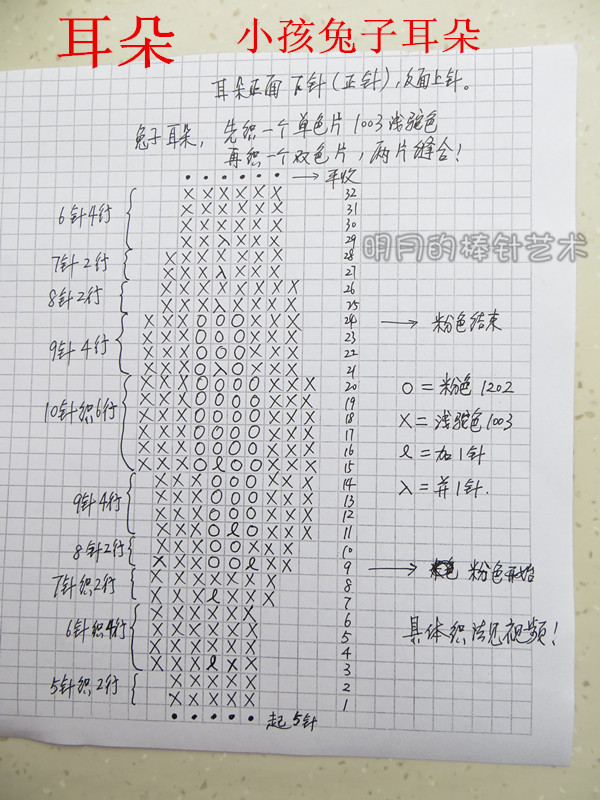 耳朵 小孩兔子耳朵
耳朵正面下针(正针),反面上针。
兔子耳朵, 先织一个单色片1003浅驼色
再织一个双色片,两片缝合!
• • • • • • → 平收
6针4行
7针2行
8针2行
9针4行
10针织6行
9针4行
8针2行
7针织2行
6针织4行
5针织2行
32
31
30
29
28
27
26
25
24 → 粉色结束
23
22
21
20
19
18
17
16
15
14
13
12
11
10
9 → 粉色开始
8
7
6
5
4
3
2
1
• • • • • 起5针
O = 粉色1202
X = 浅驼色1003
ℓ = 加1针
λ = 并1针.
具体织法见视频!
明月的棒针艺术